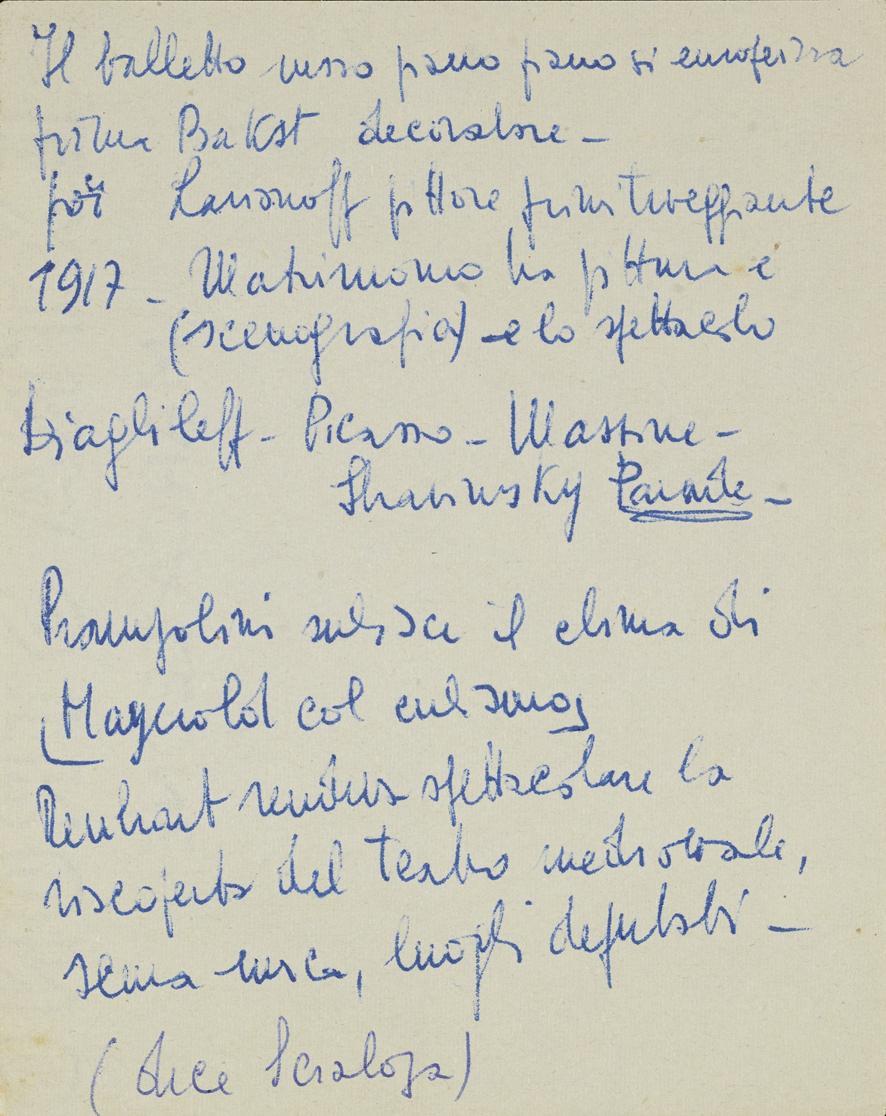 Il balletto russo piano piano si europeizza
prima Bakst decoratore –
poi Larionoff pittore primitiveggiante
1917 – Matrimonio tra pittura e
(scenografia) – e lo spettacolo
Diaghileff – Picasso – Massine –
Strawinsky Parade –
Prampolini subisce il clima di
Mayerold col cubismo
Renhart rendeva spettacolare la
riscoperta del teatro medioevale,
scena unica, luoghi deputati –
(dice Scialoja)